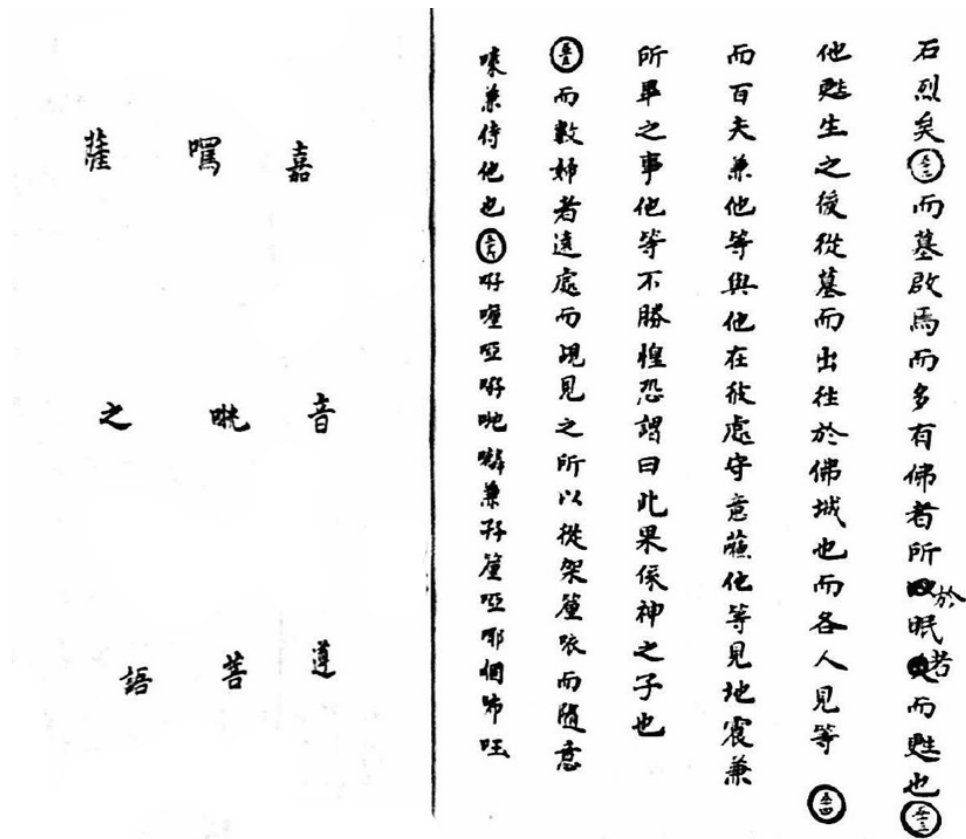 石烈矣 五二 而墓啟焉而多有佛者所於眠者而甦也 五三
他甦生之後從墓而出往於佛城也而各人見等 五四
而百夫兼他等與他在彼處守意蘓他等見地震兼
所畢之事他等不勝惶恐謂曰此果係神之子也
五五 而數婦者遠處而現見之所以從架厘唻而隨意
嗦兼侍他也 五六 吁囉啞吁吔嚹兼孖厘啞耶個吩
嘉音遵
囑咣菩
薩之語